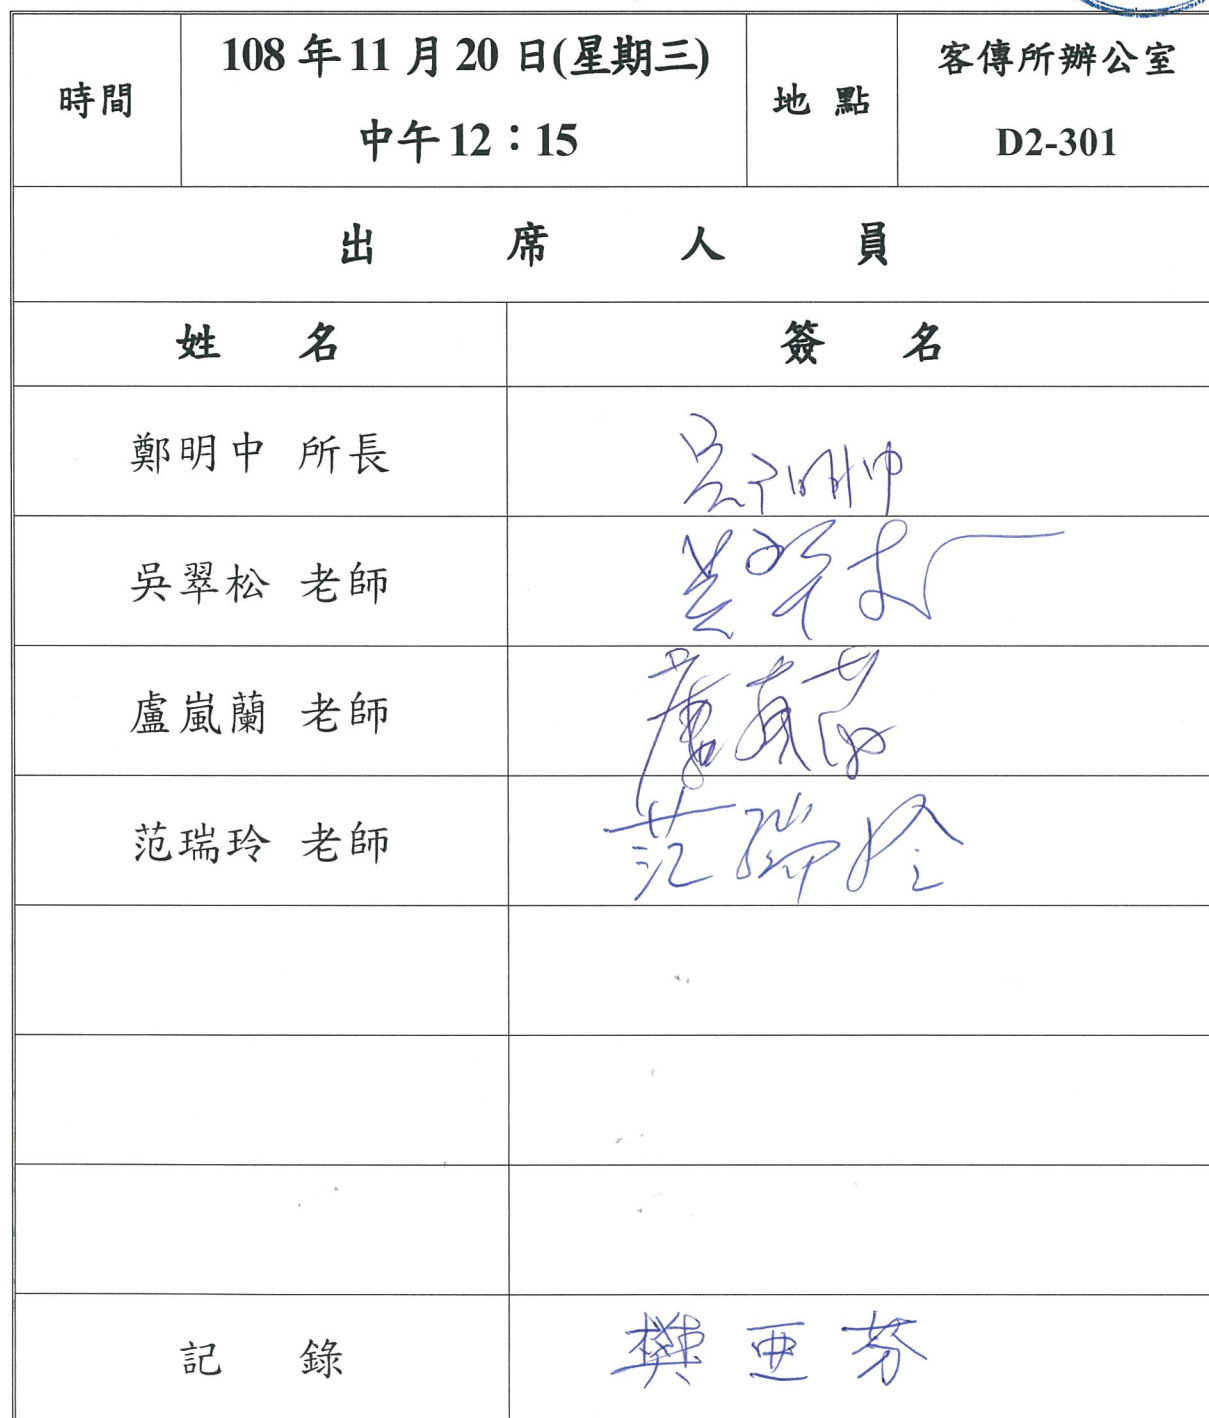 時間
108年11月20日(星期三)
中午12：15
地點
客傳所辦公室
D2-301
出席人員
姓名 簽名
鄭明中 所長 鄭明中
吳翠松 老師 吳翠松
盧嵐蘭 老師 盧嵐蘭
范瑞玲 老師 范瑞玲
記錄 樊亜芬